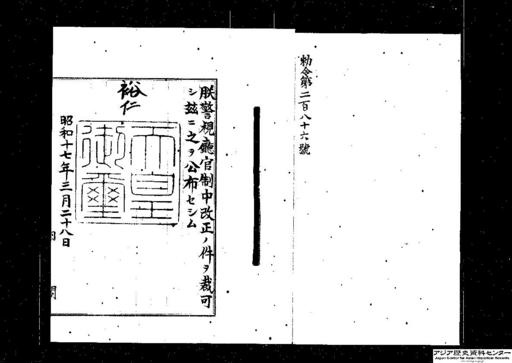 勅令第二百八十六號
朕警視廳官制中改正ノ件ヲ裁可
シ茲ニ之ヲ公布セシム
裕仁
天皇御璽
昭和十七年三月二十八日
アジア歴史資料センター
Japan Center for Asian Historical Records